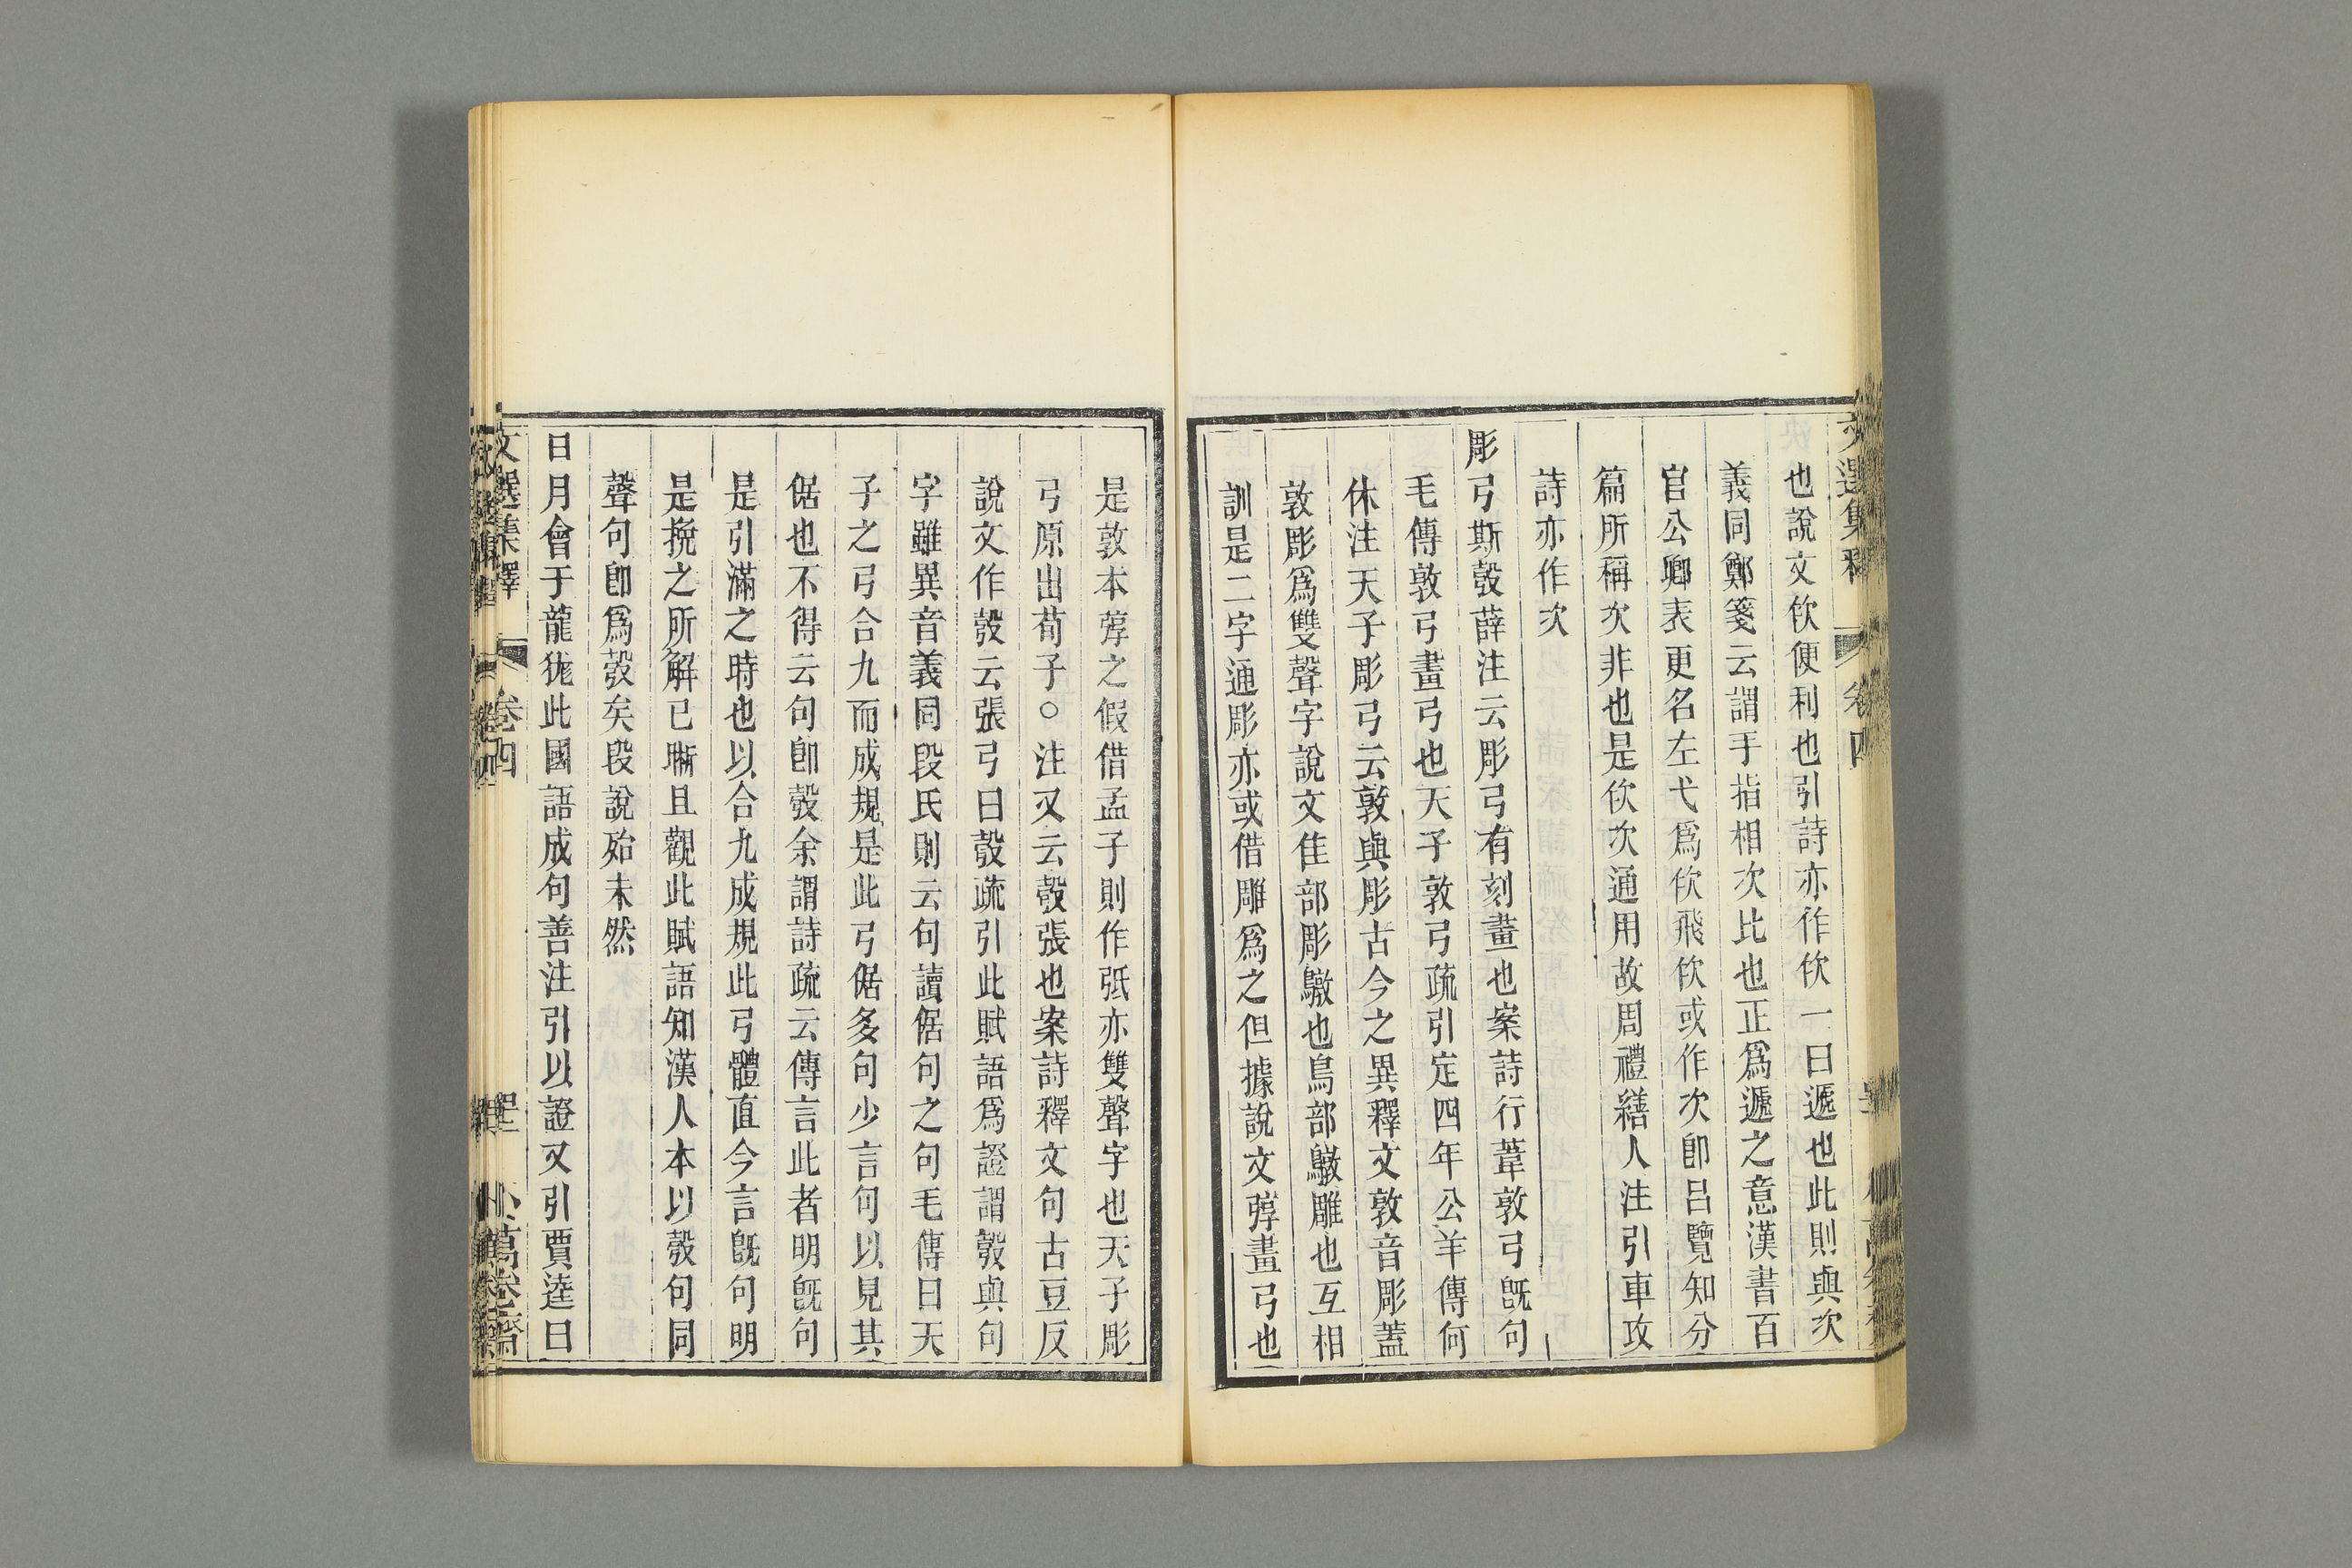 文選集釋 卷四
也說文佽便利也引詩亦作佽一曰遞也此則與次
義同鄭箋云謂手指相次比也正爲遞之意漢書百
官公卿表更名左弋爲佽飛佽或作次卽呂覽知分
篇所稱次非也是佽次通用故周禮繕人注引車攻
詩亦作次
彫弓斯彀薛注云彫弓有刻畫也案詩行葦敦弓旣句
毛傳敦弓畫弓也天子敦弓疏引定四年公羊傳何
休注天子彫弓云敦與彫古今之異釋文敦音彫蓋
敦彫爲雙聲字說文隹部彫鷻也鳥部鷻雕也互相
訓是二字通彫亦或借雕爲之但據說文弴畫弓也
是敦本弴之假借孟子則作弤亦雙聲字也天子彫
弓原出荀子○注又云彀張也案詩釋文句古豆反
說文作彀云張弓曰彀疏引此賦語爲證謂彀與句
字雖異音義同段氏則云句讀倨句之句毛傳曰天
子之弓合九而成規是此弓倨多句少言句以見其
倨也不得云句卽彀余謂詩疏云傳言此者明旣句
是引滿之時也以合九成規此弓體直今言旣句明
是挽之所解已晣且觀此賦語知漢人本以彀句同
聲句卽爲彀矣段說殆未然
日月會于龍狵此國語成句善注引以證又引賈逵曰
文選集釋 卷四 小萬卷齋